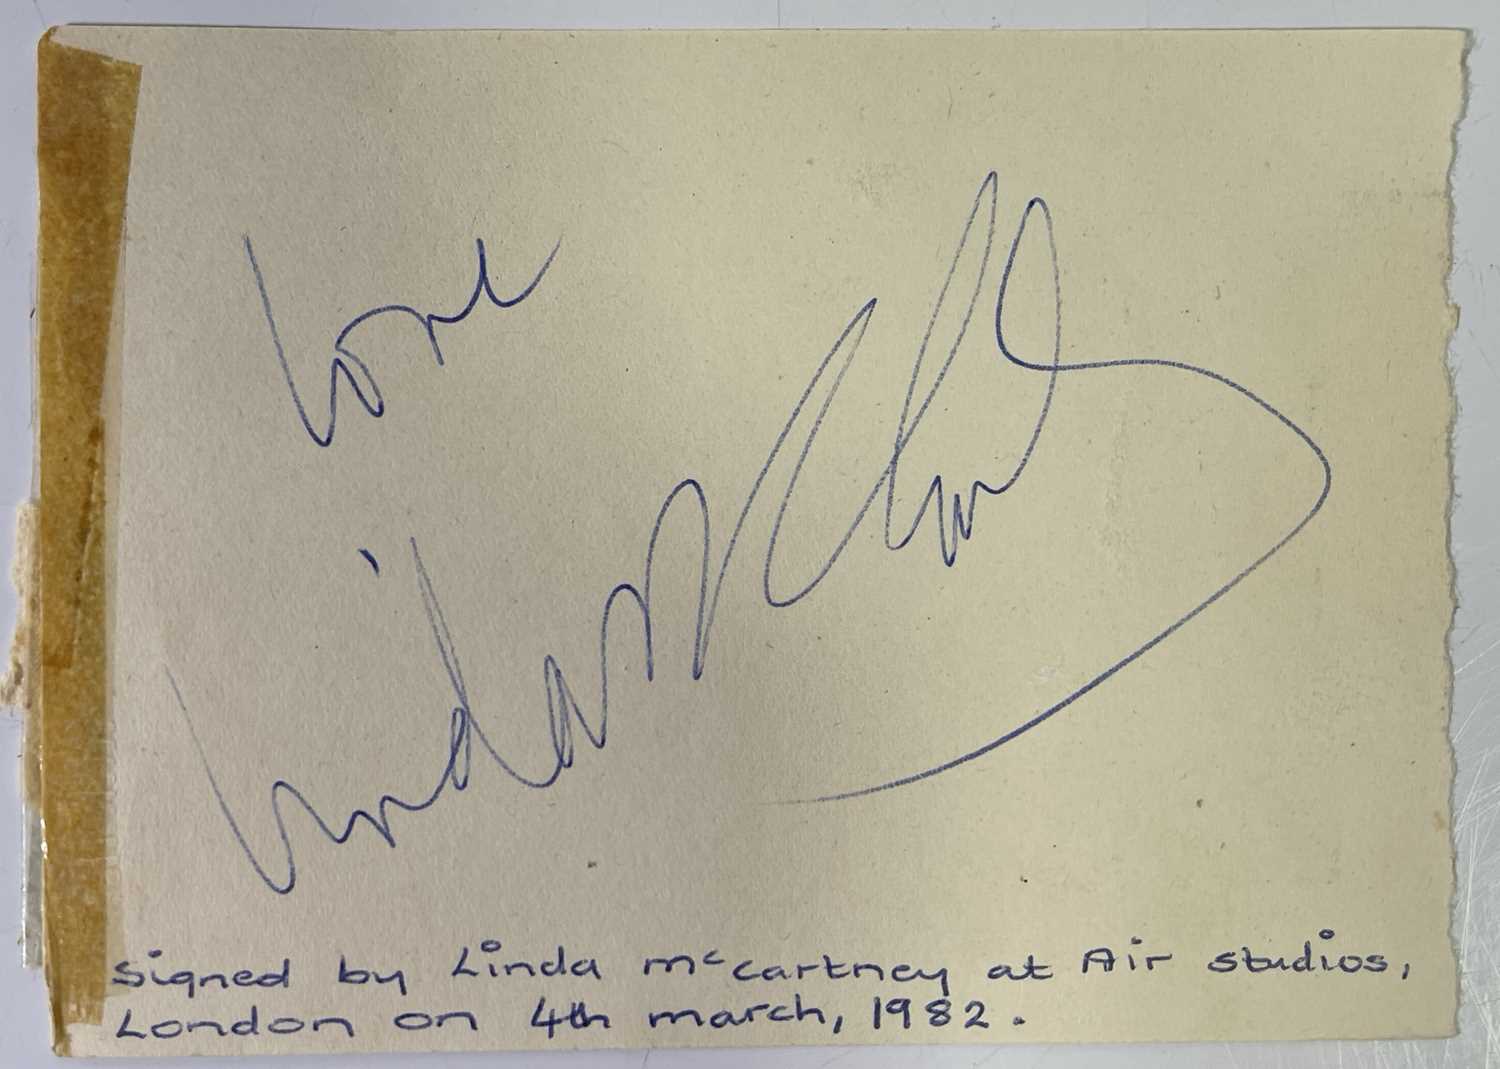 Love
Linda McCartney
signed by Linda mccartney at Air studios,
London on 4th march, 1982.